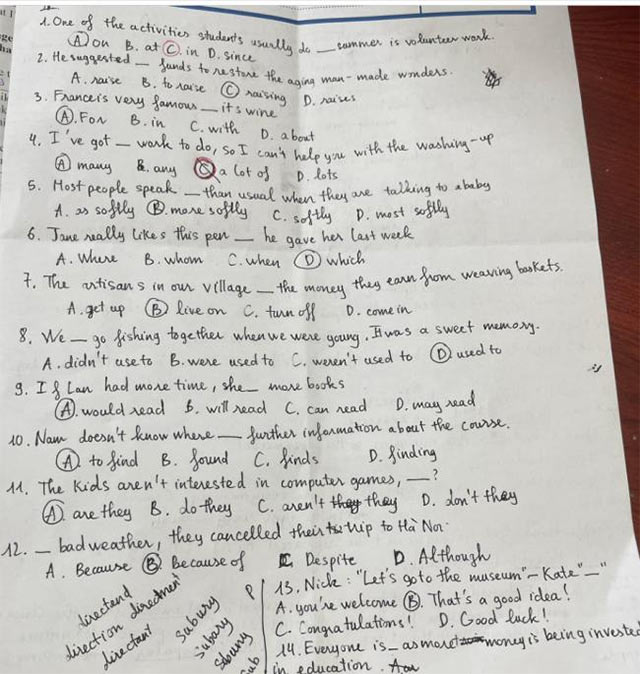 1. One of the activities students usually do __ summer is volunteer work.
A. on B. at C. in D. since
2. He suggested __ funds to restore the aging man-made wonders.
A. raise B. to raise C raising D. raises
3. France is very famous __ it's wine
A. For B. in C. with D. about
4. I've got __ work to do, so I can't help you with the washing-up
A many B. any C a lot of D. lots
5. Most people speak __ than usual when they are talking to a baby
A. as softly B. more softly C. softly D. most softly
6. Jane really likes this pen __ he gave her last week
A. Where B. whom C. when D which
7. The artisans in our village __ the money they earn from weaving baskets.
A. get up B live on C. turn off D. come in
8. We __ go fishing together when we were young. It was a sweet memory.
A. didn't use to B. were used to C. weren't used to D used to
9. If Lan had more time, she __ more books
A. would read B. will read C. can read D. may read
10. Nam doesn't know where __ further information about the course.
A to find B. found C. finds D. finding
11. The kids aren't interested in computer games, __?
A are they B. do they C. aren't they D. don't they
12. __ bad weather, they cancelled their trip to Hà Nội.
A. Because B. Because of C. Despite D. Although
13. Nick: "Let's go to the museum" - Kate "__"
A. you're welcome B. That's a good idea!
C. Congratulations! D. Good luck!
14. Everyone is __ as more money is being invested
in education.
directand
direction directment
directant
subury
subary
sbury
sub